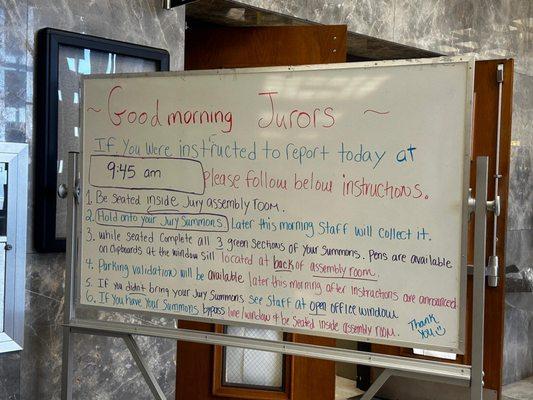 ~ Good morning Jurors ~
If You Were instructed to report today at
9:45 am Please follow below instructions.
1. Be seated inside Jury assembly room.
2. Hold onto your Jury Summons Later this morning Staff will collect it.
3. while seated Complete all 3 green sections of your summons. Pens are available
on clipboards at the window sill located at back of assembly room.
4. Parking validation will be available later this morning after instructions are announced
5. If you didn't bring your Jury Summons see Staff at open office window
6. If You have Your Summons bypass line window & be Seated inside assembly room.
Thank
You